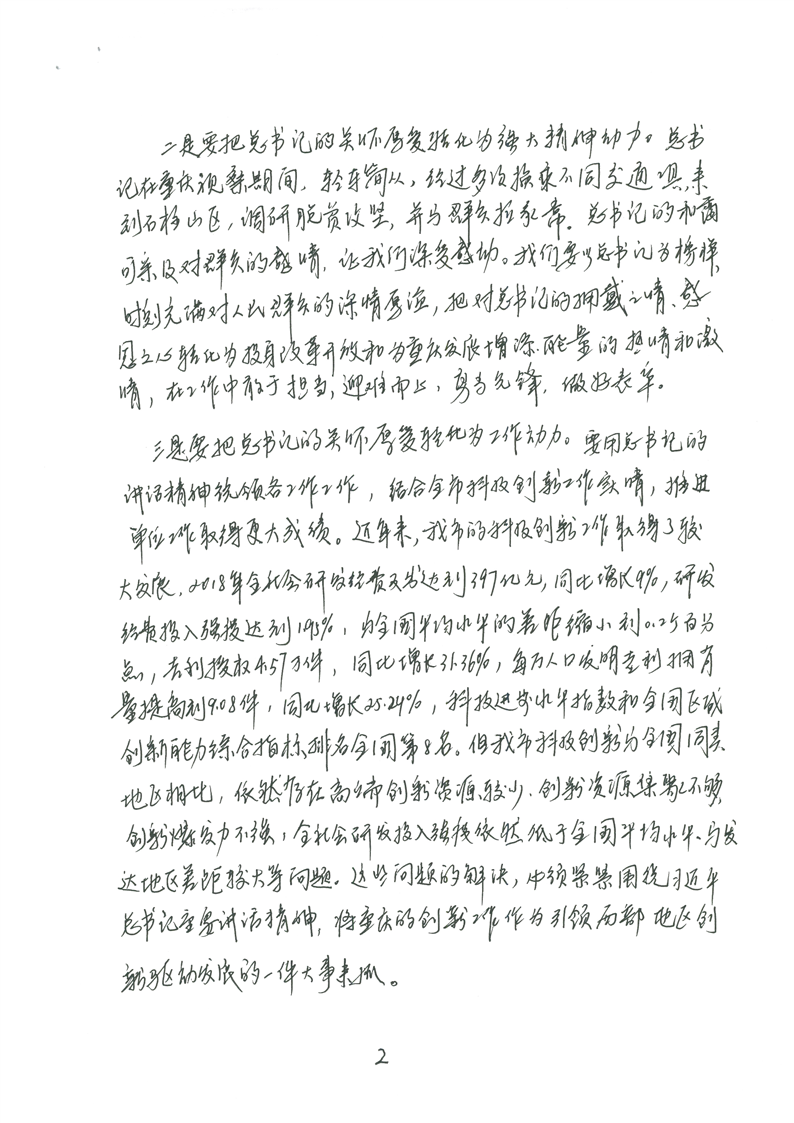 二是要把总书记的关怀厚爱转化为强大精神动力。总书
记在重庆视察期间，轻车简从，经过多次换乘不同交通工具，来
到石柱山区，调研脱贫攻坚，并与群众拉家常。总书记的和蔼
可亲及对群众的感情，让我们深受感动。我们要以总书记为榜样，
时刻充满对人民群众的深情厚谊，把对总书记的拥戴之情、感
恩之心转化为投身改革开放和为重庆发展增添能量的热情和激
情，在工作中敢于担当，迎难而上，勇当先锋，做好表率。
三是要把总书记的关怀厚爱转化为工作动力。要用总书记的
讲话精神统领各工作工作，结合全市科技创新工作实情，推进
单位工作取得更大成绩。近年来，我市的科技创新工作取得了较
大发展，2018年全社会研发经费支出达到397亿元，同比增长9%，研发
经费投入强度达到1.95%，与全国平均水平的差距缩小到0.25百分
点，专利授权4.57万件，同比增长31.36%，每万人口发明专利拥有
量提高到9.08件，同比增长25.24%，科技进步水平指数和全国区域
创新能力综合指标排名全国第8名。但我市科技创新与全国同类
地区相比，依然存在高端创新资源较少、创新资源集聚不够、
创新爆发力不强，全社会研发投入强度依然低于全国平均水平、与发
达地区差距较大等问题。这些问题的解决，必须紧紧围绕习近平
总书记重要讲话精神，将重庆的创新工作作为引领西部地区创
新驱动发展的一件大事来抓。
2